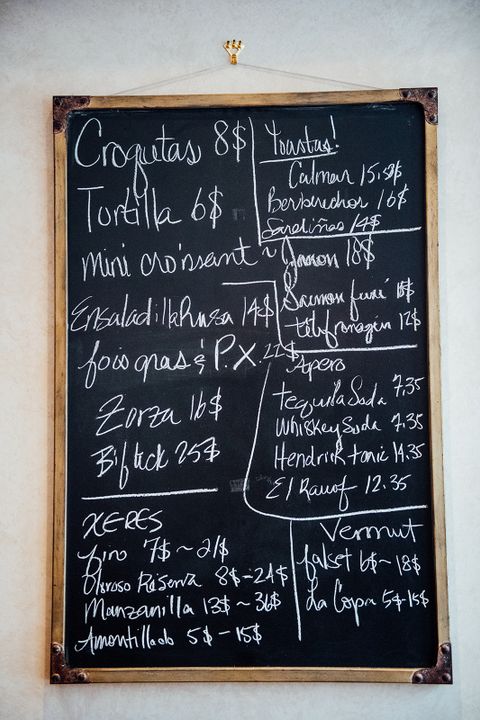 Croquetas 8$
Tortilla 6$
mini croissant ~ Jamon 18$
Ensaladilla Rusa 14$
fois gras & P.X. 22$
Zorza 16$
Biftek 25$
Tostas!
Calmar 15.50$
Berberechos 16$
Sardiñas 14$
Saumon fumé
12$
Apero
Tequila Soda 7,35
Whiskey Soda 7.35
Hendrick tonic 14.35
12.35
XERES
fino 7$ ~ 21$
Oloroso Reserva 8$-24$
Manzanilla 13$ ~ 36$
Amontillado 5$ - 15$
Vermut
falset 6$ ~ 18$
La Copa 5$-15$